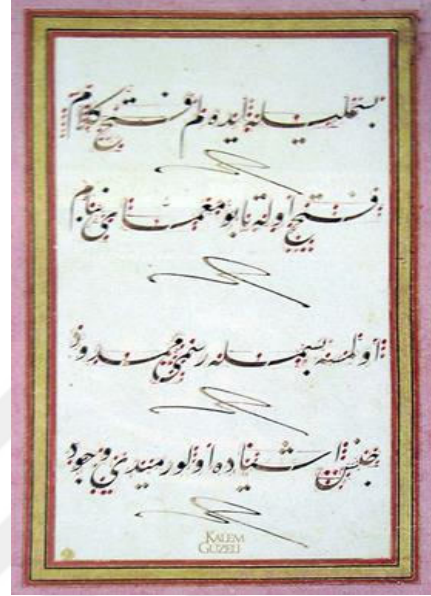 بسمليله ايده لم فتح كلام
فتح اوله تا بو معماى بنام
اولمسه بسمله رسمى ممدود
اولورميدى وجود
KALEM
GÜZELİ